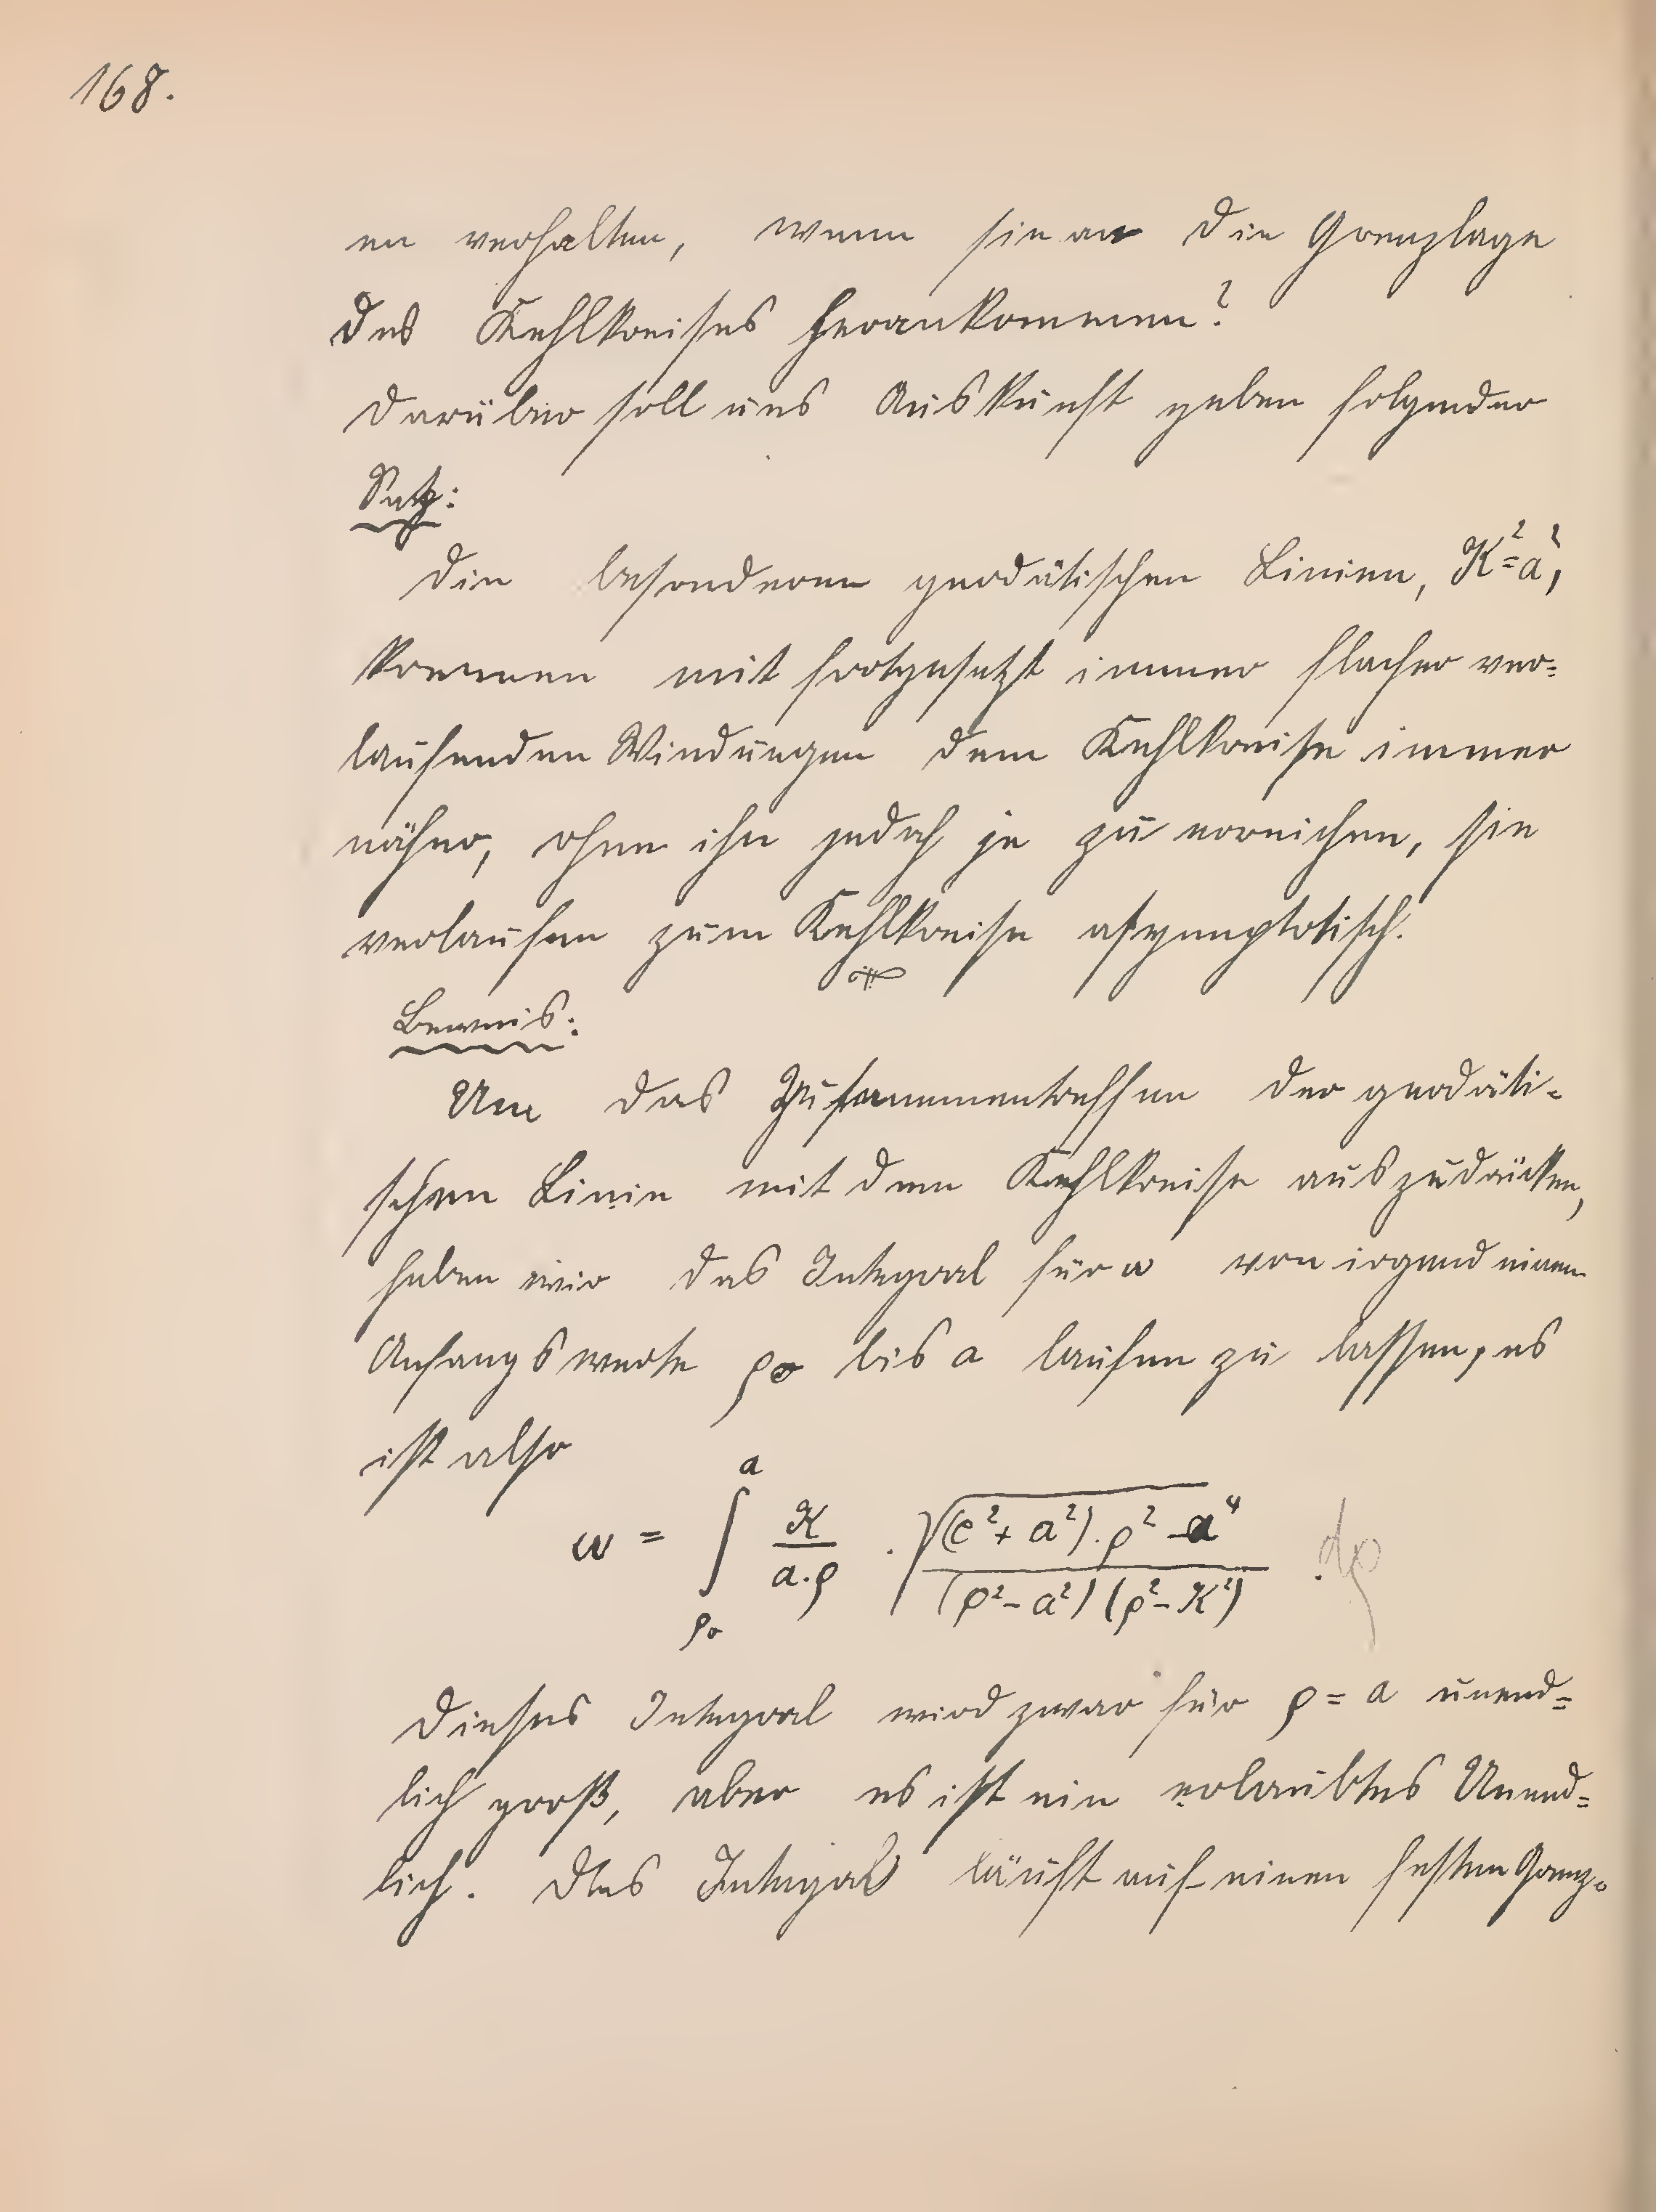 168.
en verhalten, wenn sie an die Grenzlage
des Kehlkreises herankommen?
Darüber soll uns Auskunft geben folgender
Satz:
Die besonderen geodätischen Linien, K²=a²,
kommen mit fortgesetzt immer flacher ver=
laufenden Windungen dem Kehlkreise immer
näher, ohne ihn jedoch je zu erreichen, sie
verlaufen zum Kehlkreise asymptotisch.
Beweis:
Um das Zusammentreffen der geodäti=
schen Linie mit dem Kehlkreise auszudrücken,
haben wir das Integral für ω von irgend einem
Anfangswerte ρ₀ bis a laufen zu lassen, es
ist also
ω = ∫_{ρ₀}^{a} K/(a.ρ) . √(((c²+a²).ρ²-a⁴)/((ρ²-a²)(ρ²-K²))) . dρ
Dieses Integral wird zwar für ρ = a unend=
lich groß, aber es ist ein erlaubtes Unend=
lich. Das Integral läuft auf einen festen Grenz=